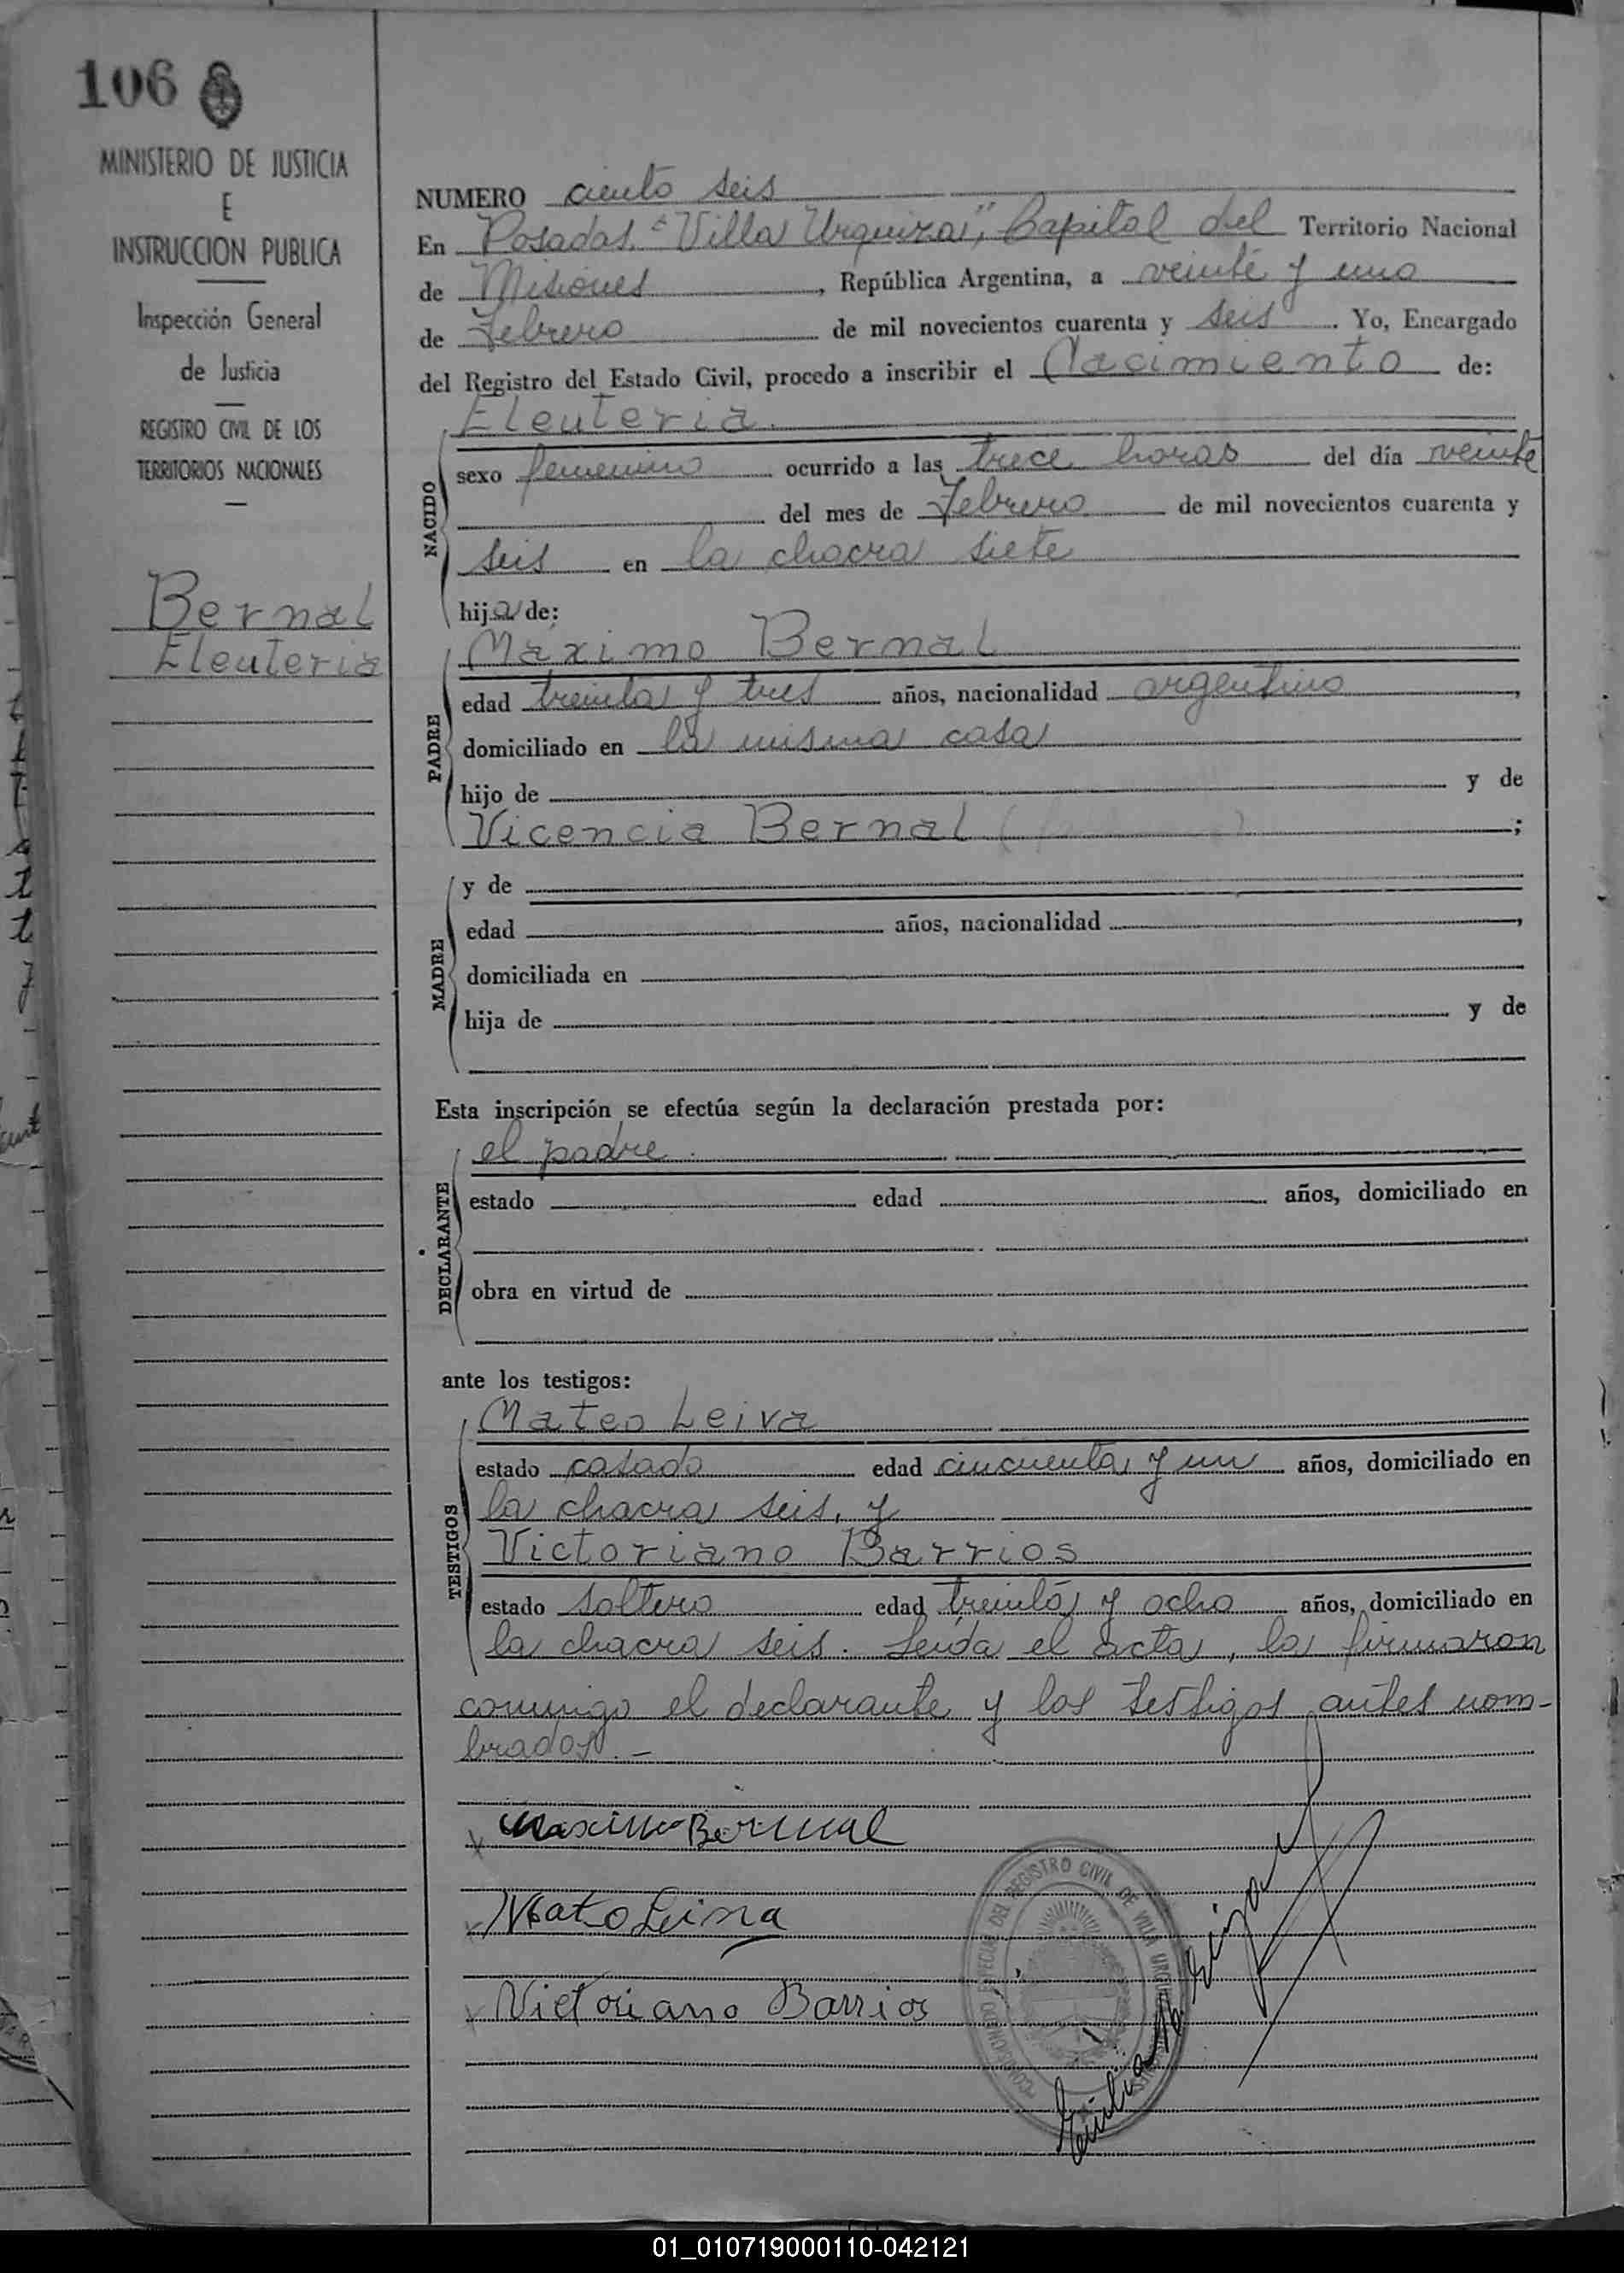 106
MINISTERIO DE JUSTICIA
E
INSTRUCCION PUBLICA
Inspección General
de Justicia
REGISTRO CIVIL DE LOS
TERRITORIOS NACIONALES
Bernal
Eleuteria
NUMERO ciento seis
En Posadas, "Villa Urquiza", Capital del Territorio Nacional
de Misiones, República Argentina, a veinte y uno
de Febrero de mil novecientos cuarenta y seis. Yo, Encargado
del Registro del Estado Civil, procedo a inscribir el Nacimiento de:
Eleuteria.
NACIDO
sexo femenino ocurrido a las trece horas del día veinte
del mes de Febrero de mil novecientos cuarenta y
seis en la chacra siete
hija de:
PADRE
Máximo Bernal
edad treinta y tres años, nacionalidad argentino,
domiciliado en la misma casa
hijo de y de
Vicencia Bernal ;
MADRE
y de
edad años, nacionalidad ,
domiciliada en
hija de y de
Esta inscripción se efectúa según la declaración prestada por:
DECLARANTE
el padre.
estado edad años, domiciliado en
obra en virtud de
ante los testigos:
TESTIGOS
Mateo Leiva
estado casado edad cincuenta y un años, domiciliado en
la chacra seis, y
Victoriano Barrios
estado soltero edad treinta y ocho años, domiciliado en
la chacra seis. Leída el acta, la firmaron
conmigo el declarante y los testigos antes nom-
brados.-
Maximo Bernal
Mateo Leiva
Victoriano Barrios
DEL REGISTRO CIVIL DE VILLA URQUIZA
01_010719000110-042121